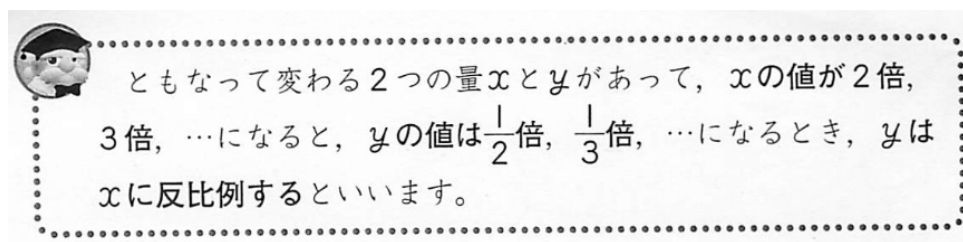 ともなって変わる2つの量xとyがあって，xの値が2倍，
3倍，…になると，yの値は1/2倍，1/3倍，…になるとき，yは
xに反比例するといいます。